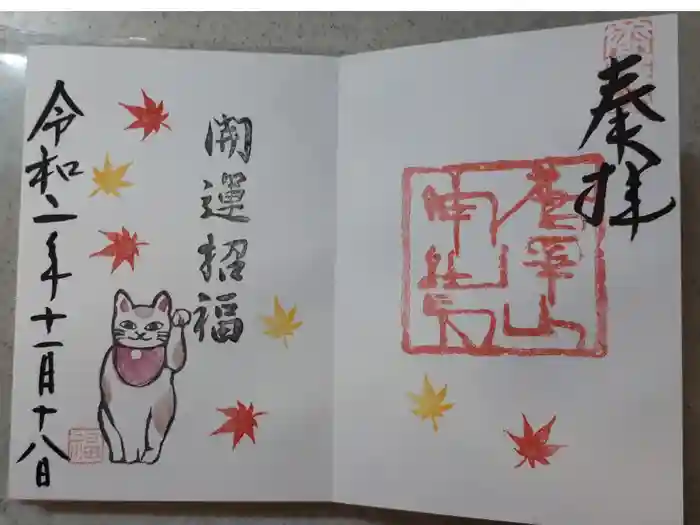 奉拝
唐澤山
神社
開運招福
令和二年十一月十八日
福